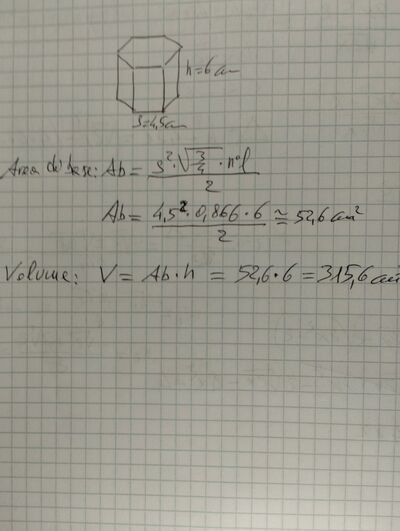 h=6 cm
s=4,5 cm
Area di base: Ab = s²·√3/4·n°l / 2
Ab = 4,5²·0,866·6 / 2 ≅ 52,6 cm²
Volume: V = Ab·h = 52,6·6 = 315,6 cm